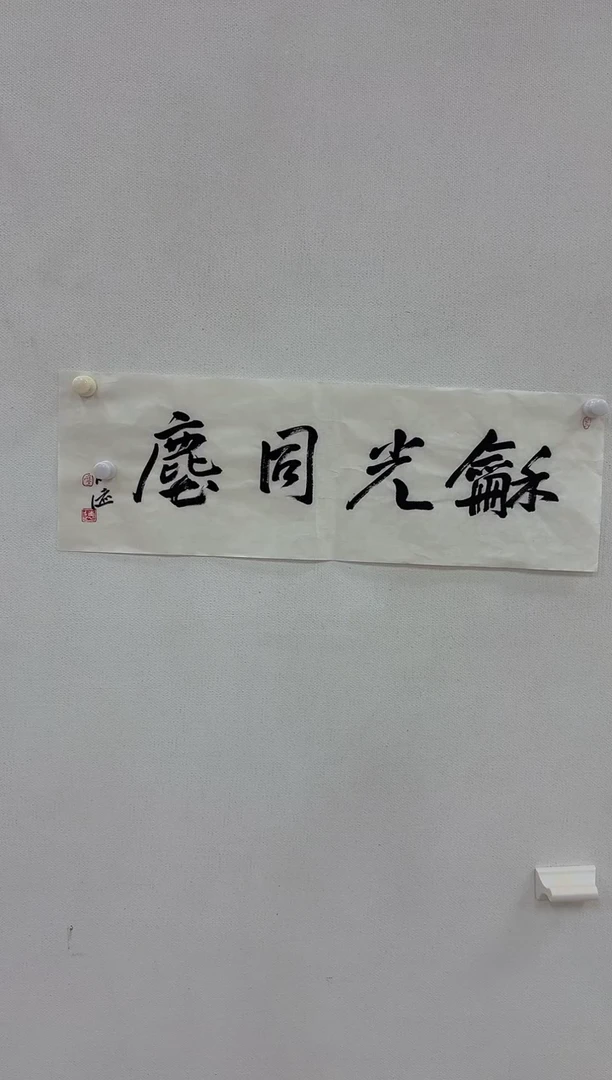 龢光同塵